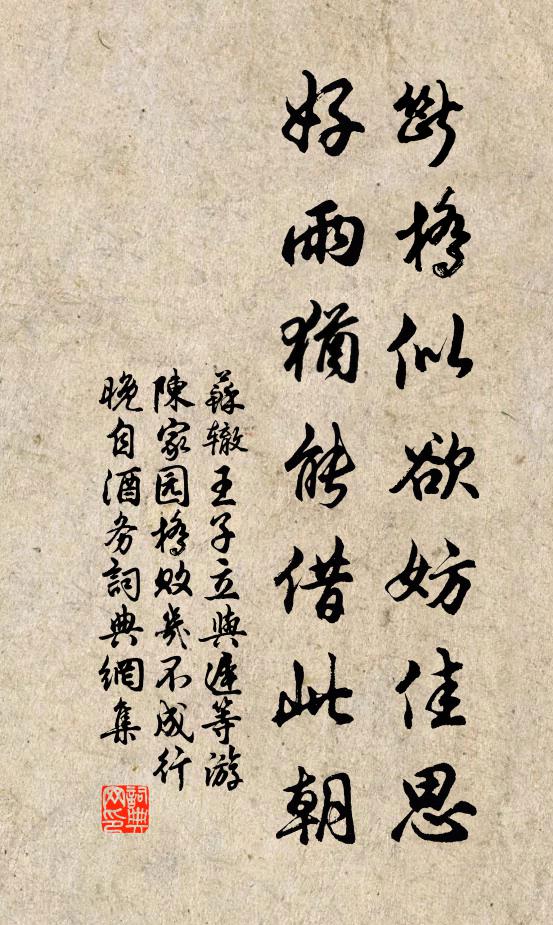 斷橋似欲妨佳思
好雨猶能借此朝
蘇辙王子立與遲等游
陳家园橋敗幾不成行
晚自酒务詞典網集
詞典
网印